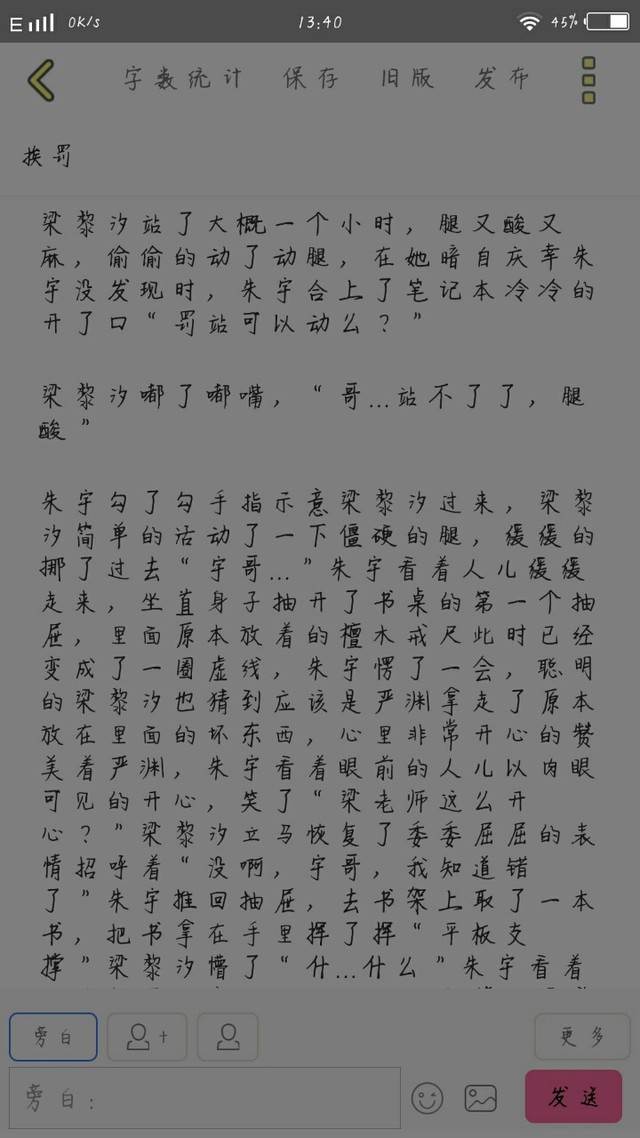 0K/s 13:40 45%
字数统计 保存 旧版 发布
挨罚
梁黎汐站了大概一个小时，腿又酸又
麻，偷偷的动了动腿，在她暗自庆幸朱
宇没发现时，朱宇合上了笔记本冷冷的
开了口“罚站可以动么？”
梁黎汐嘟了嘟嘴，“哥...站不了了，腿
酸”
朱宇勾了勾手指示意梁黎汐过来，梁黎
汐简单的活动了一下僵硬的腿，缓缓的
挪了过去“宇哥...”朱宇看着人儿缓缓
走来，坐直身子抽开了书桌的第一个抽
屉，里面原本放着的檀木戒尺此时已经
变成了一圈虚线，朱宇愣了一会，聪明
的梁黎汐也猜到应该是严渊拿走了原本
放在里面的坏东西，心里非常开心的赞
美着严渊，朱宇看着眼前的人儿以肉眼
可见的开心，笑了“梁老师这么开
心？”梁黎汐立马恢复了委委屈屈的表
情招呼着“没啊，宇哥，我知道错
了”朱宇推回抽屉，去书架上取了一本
书，把书拿在手里挥了挥“平板支
撑”梁黎汐懵了“什...什么”朱宇看着
旁白 更多
旁白： 发送